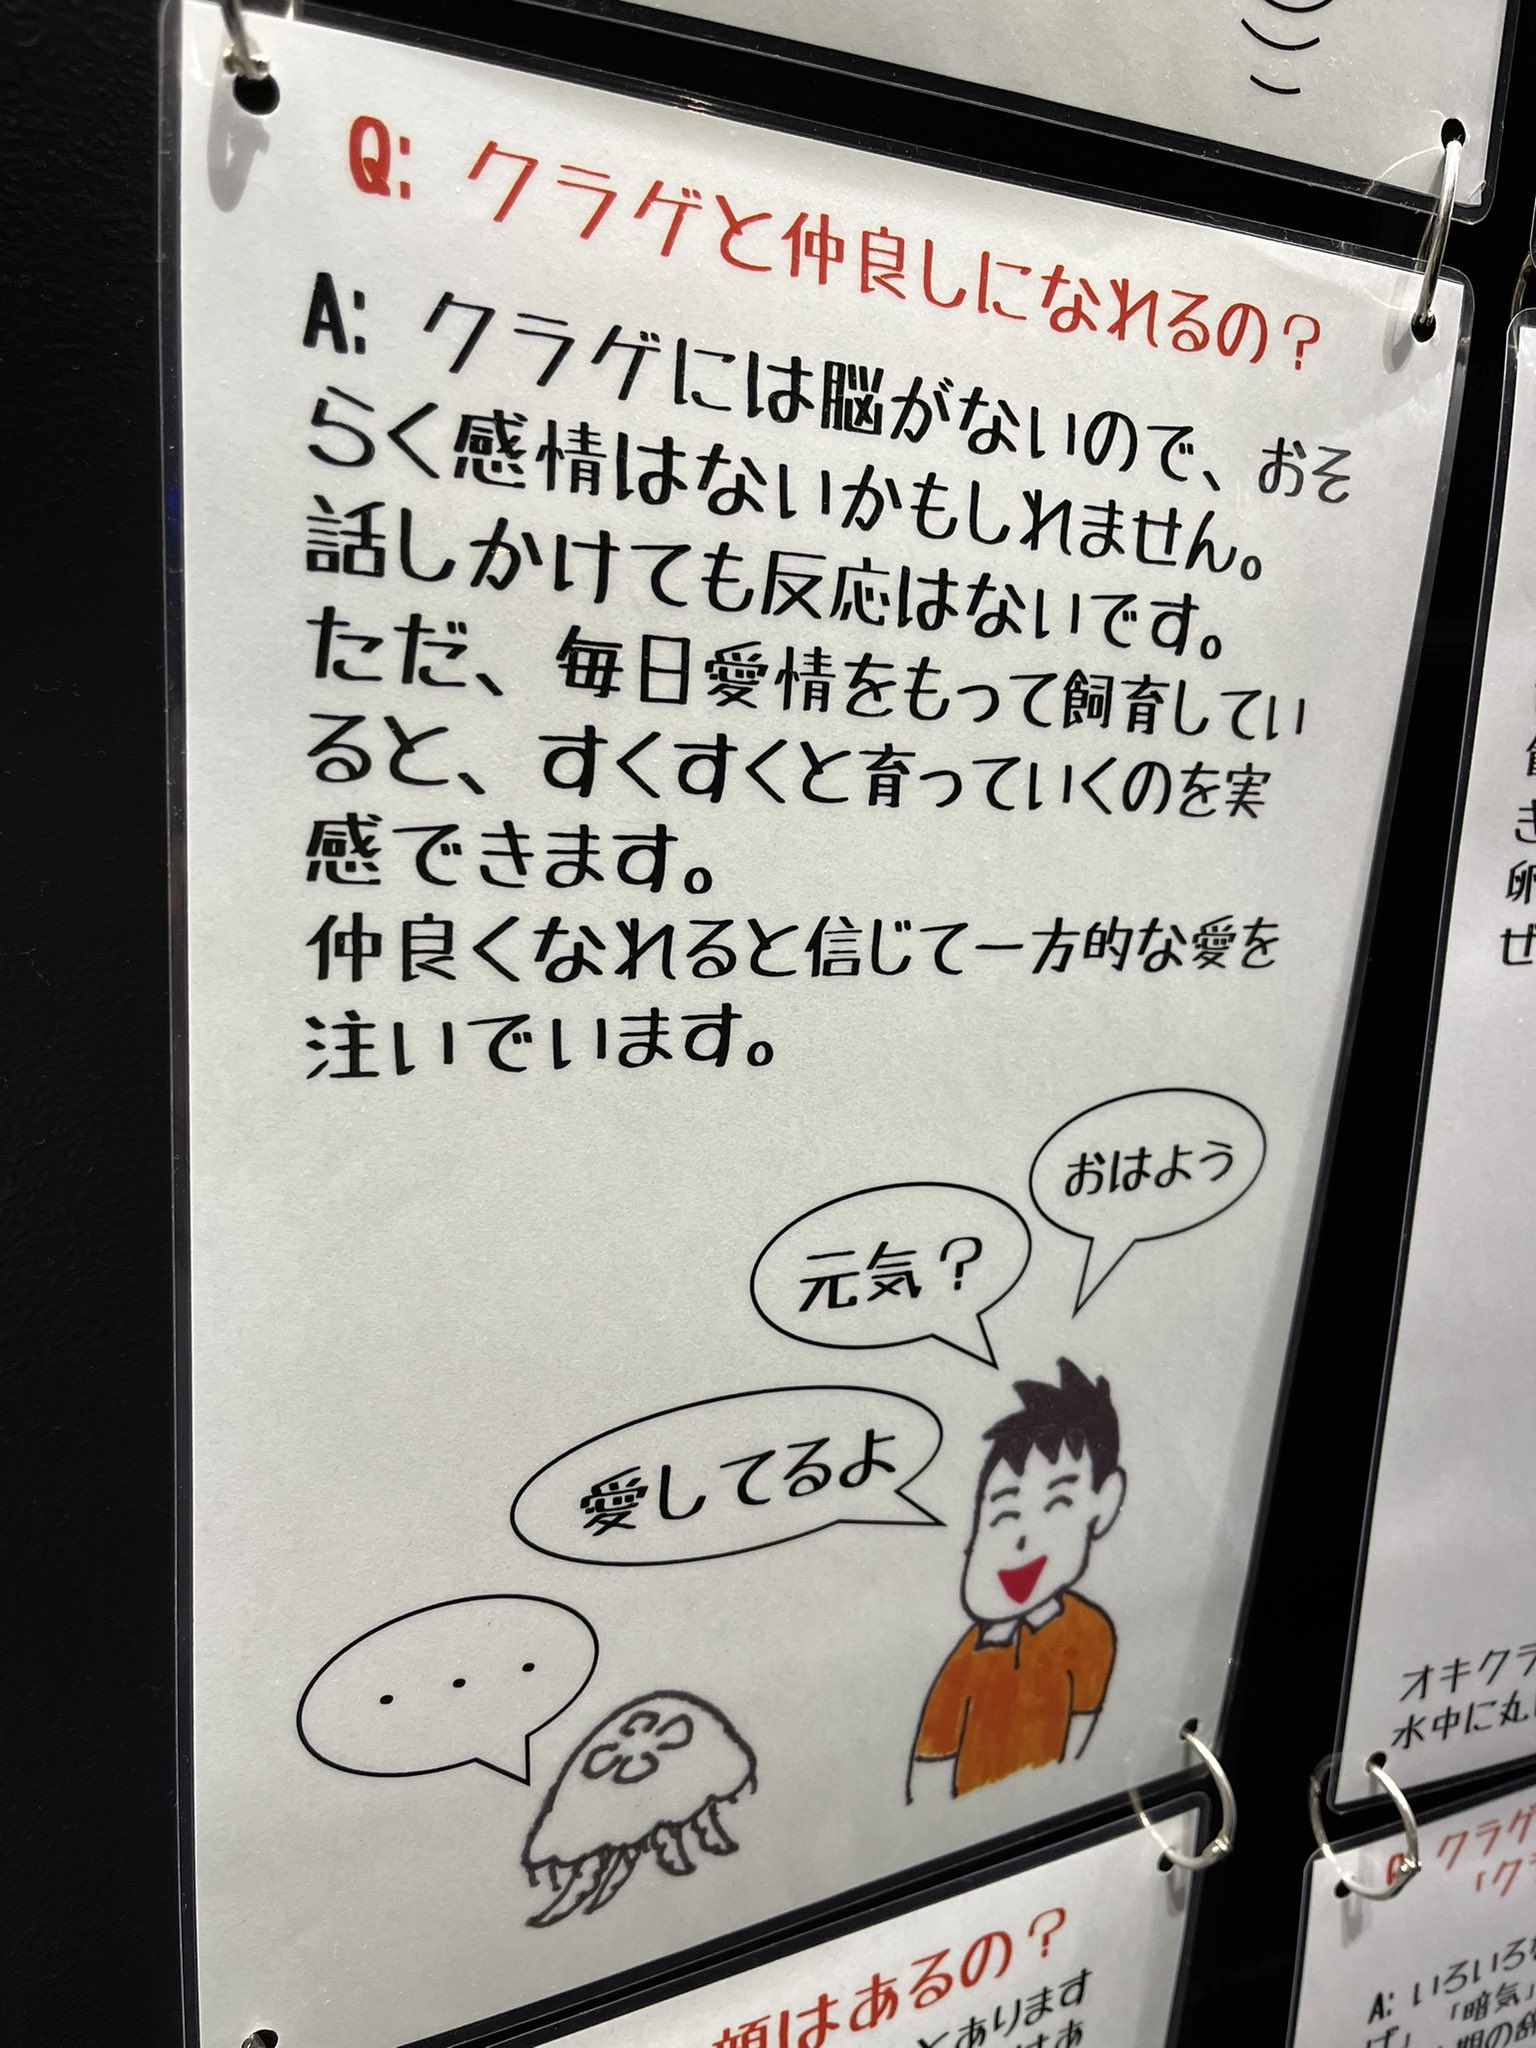 Q: クラゲと仲良しになれるの？
A: クラゲには脳がないので、おそ
らく感情はないかもしれません。
話しかけても反応はないです。
ただ、毎日愛情をもって飼育してい
ると、すくすくと育っていくのを実
感できます。
仲良くなれると信じて一方的な愛を
注いでいます。
おはよう
元気？
愛してるよ
・・・
顔はあるの？
とあります
はあ
き
卵
ぜ
オキクラ
水中に丸
クラゲ
「ク
A: いろいろ
「暗気」